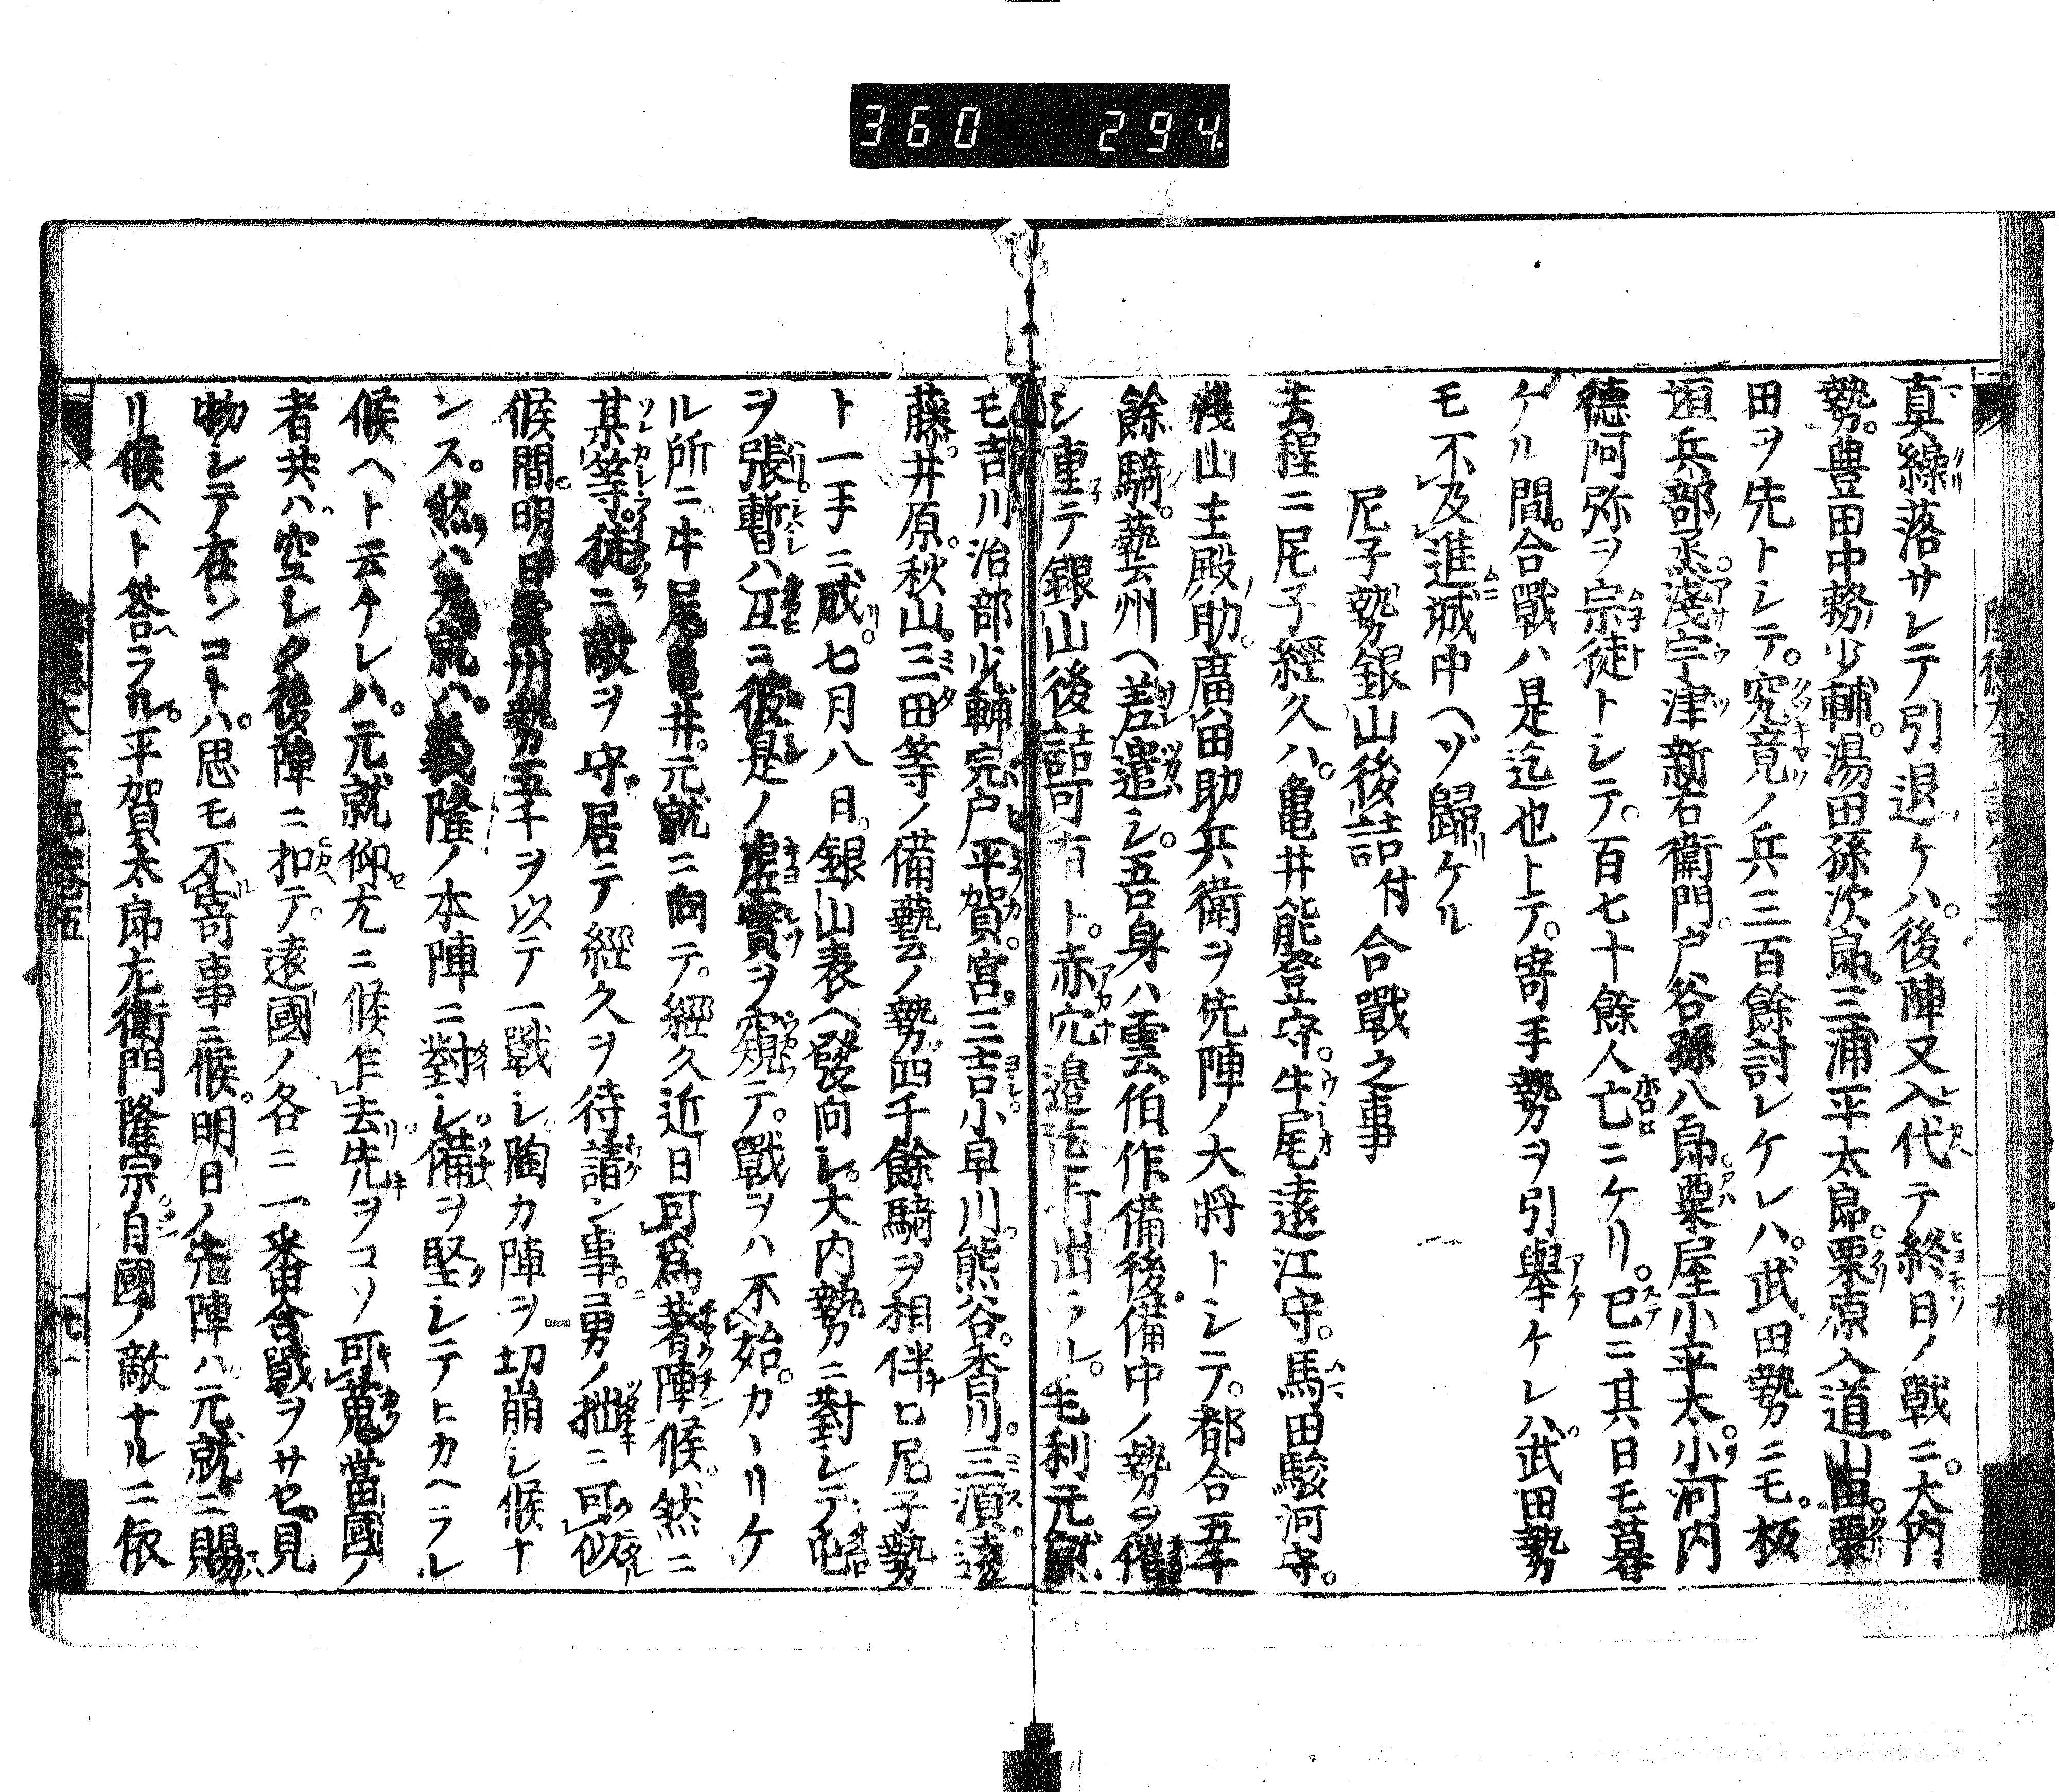 360 294
真繰落サレテ引退ケハ。後陣又入代テ終日ノ戰ニ。大内
勢。豊田中務少輔。湯田孫次郎。三浦平太郎。栗原入道。山田。栗
田ヲ先トシテ。究竟ノ兵三百餘討レケレハ。武田勢ニモ。板
垣兵部丞。淺宇津新右衛門。戸谷孫八郎。粟屋小平太。小河内
德阿弥ヲ宗徒トシテ。百七十餘人亡ニケリ。已ニ其日モ暮
ケル間。合戰ハ是迄也トテ。寄手勢ヲ引擧ケレハ。武田勢
モ不及進城中ヘゾ歸ケル
尼子勢銀山後詰付合戰之事
去程ニ尼子經久ハ。亀井能登守。牛尾遠江守。馬田駿河守。
淺山主殿助。廣田助兵衛ヲ先陣ノ大将トシテ。都合五千
餘騎。藝州ヘ差遣シ。吾身ハ雲。伯。作。備後。備中ノ勢ヲ催
シ重テ銀山後詰可有ト。赤穴邉迄打出ラル。毛利元就。
モ吉川治部少輔。完戸。平賀。宮。三吉。小早川。熊谷。香川。三須。遠
藤。井原。秋山。三田等ノ備藝ノ勢四千餘騎ヲ相伴ヒ尼子勢
ト一手ニ成。七月八日。銀山表ヘ發向シ。大内勢ニ對シテ屯
ヲ張。暫ハ互ニ彼是ノ虚實ヲ窺テ。戰ヲハ不始。カヽリケ
ル所ニ牛尾亀井。元就ニ向テ。經久近日可爲著陣候。然ニ
某等。徒ニ敵ヲ守居テ經久ヲ待請ン事。勇ノ拙ニ可似
候間。明日雲州勢五千ヲ以テ一戰シ陶カ陣ヲ切崩シ候ナ
ンス。然ハ元就ハ。義隆ノ本陣ニ對シ。備ヲ堅シテヒカヘラル
候ヘト云ケレハ。元就仰尤ニ候乍去先ヲコソ可蒐當國ノ
者共ハ空シク後陣ニ扣テ。遠國ノ各ニ一番合戰ヲサセ見
物シテ在ンコトハ。思モ不寄事ニ候。明日ノ先陣ハ元就ニ賜
リ候ヘト答ラル。平賀太郎左衛門隆宗。自國ノ敵ナルニ依